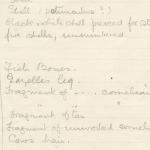 Shell (petunculus?)
Black & white shell pierced for st
five shells, unnumbered.
Fish Bones.
Gazelles leg.
Fragment of .... cornelian
Fragment of
Fragment of unworked cornel
Cows hair.